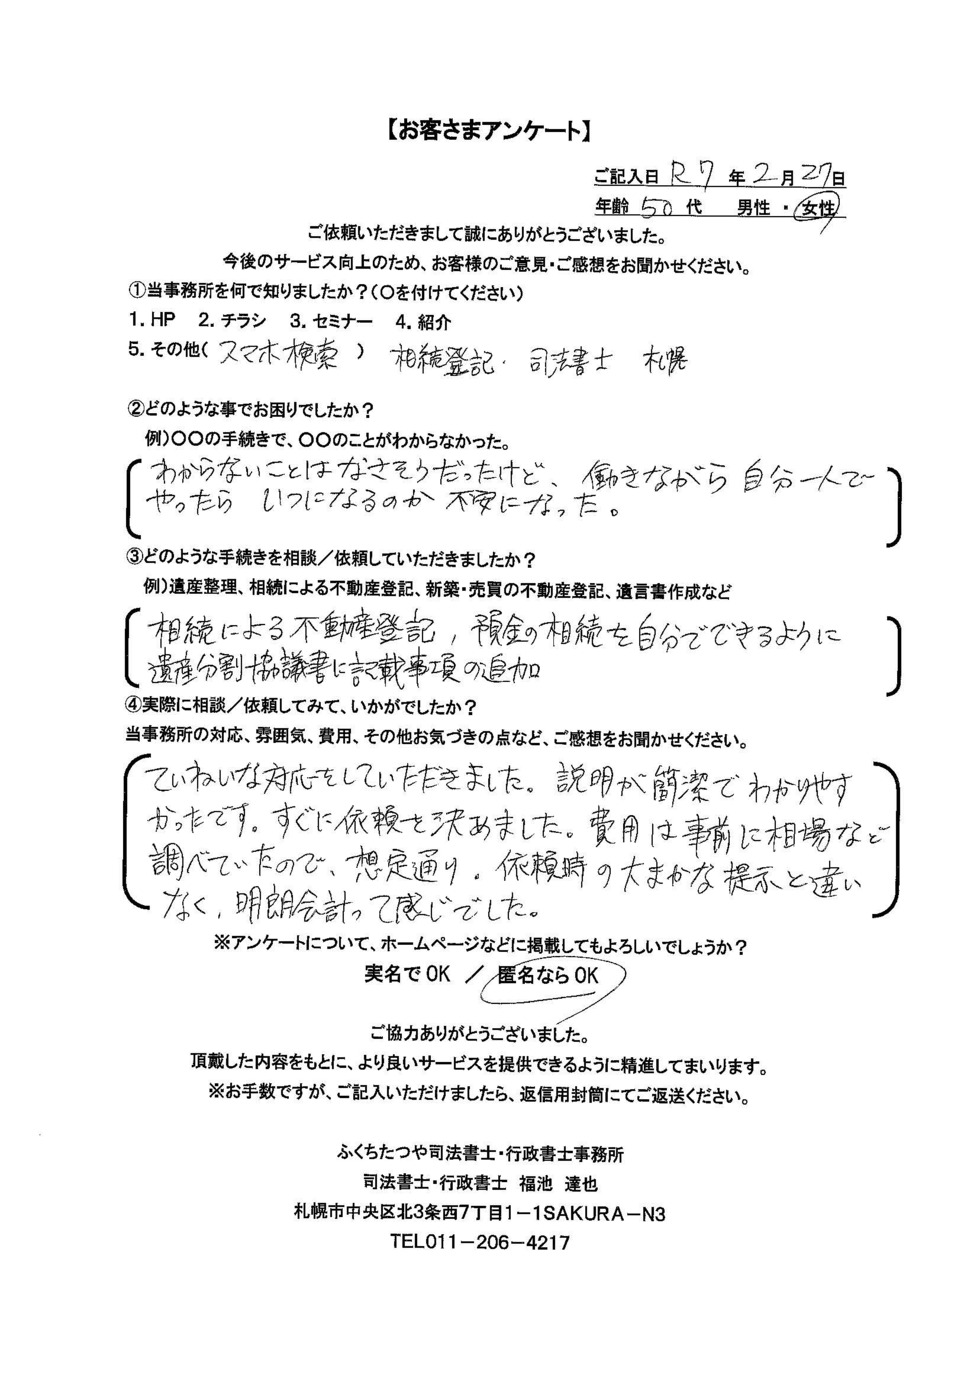 【お客さまアンケート】
ご記入日 R7 年 2 月 27 日
年齢 50 代 男性 ・ 女性
ご依頼いただきまして誠にありがとうございました。
今後のサービス向上のため、お客様のご意見・ご感想をお聞かせください。
①当事務所を何で知りましたか？（〇を付けてください）
1. HP 2. チラシ 3. セミナー 4. 紹介
5. その他（ スマホ検索 ） 相続登記. 司法書士 札幌
②どのような事でお困りでしたか？
例）〇〇の手続きで、〇〇のことがわからなかった。
わからないことはなさそうだったけど、働きながら自分一人で
やったら いつになるのか 不安になった。
③どのような手続きを相談／依頼していただきましたか？
例）遺産整理、相続による不動産登記、新築・売買の不動産登記、遺言書作成など
相続による不動産登記, 預金の相続を自分でできるように
遺産分割協議書に記載事項の追加
④実際に相談／依頼してみて、いかがでしたか？
当事務所の対応、雰囲気、費用、その他お気づきの点など、ご感想をお聞かせください。
ていねいな対応をしていただきました。説明が簡潔でわかりやす
かったです。すぐに依頼を決めました。費用は事前に相場など
調べていたので、想定通り。依頼時の大まかな提示と違い
なく, 明朗会計って感じでした。
※アンケートについて、ホームページなどに掲載してもよろしいでしょうか？
実名でOK ／ 匿名ならOK
ご協力ありがとうございました。
頂戴した内容をもとに、より良いサービスを提供できるように精進してまいります。
※お手数ですが、ご記入いただけましたら、返信用封筒にてご返送ください。
ふくちたつや司法書士・行政書士事務所
司法書士・行政書士 福池 達也
札幌市中央区北3条西7丁目1－1SAKURA－N3
TEL011－206－4217